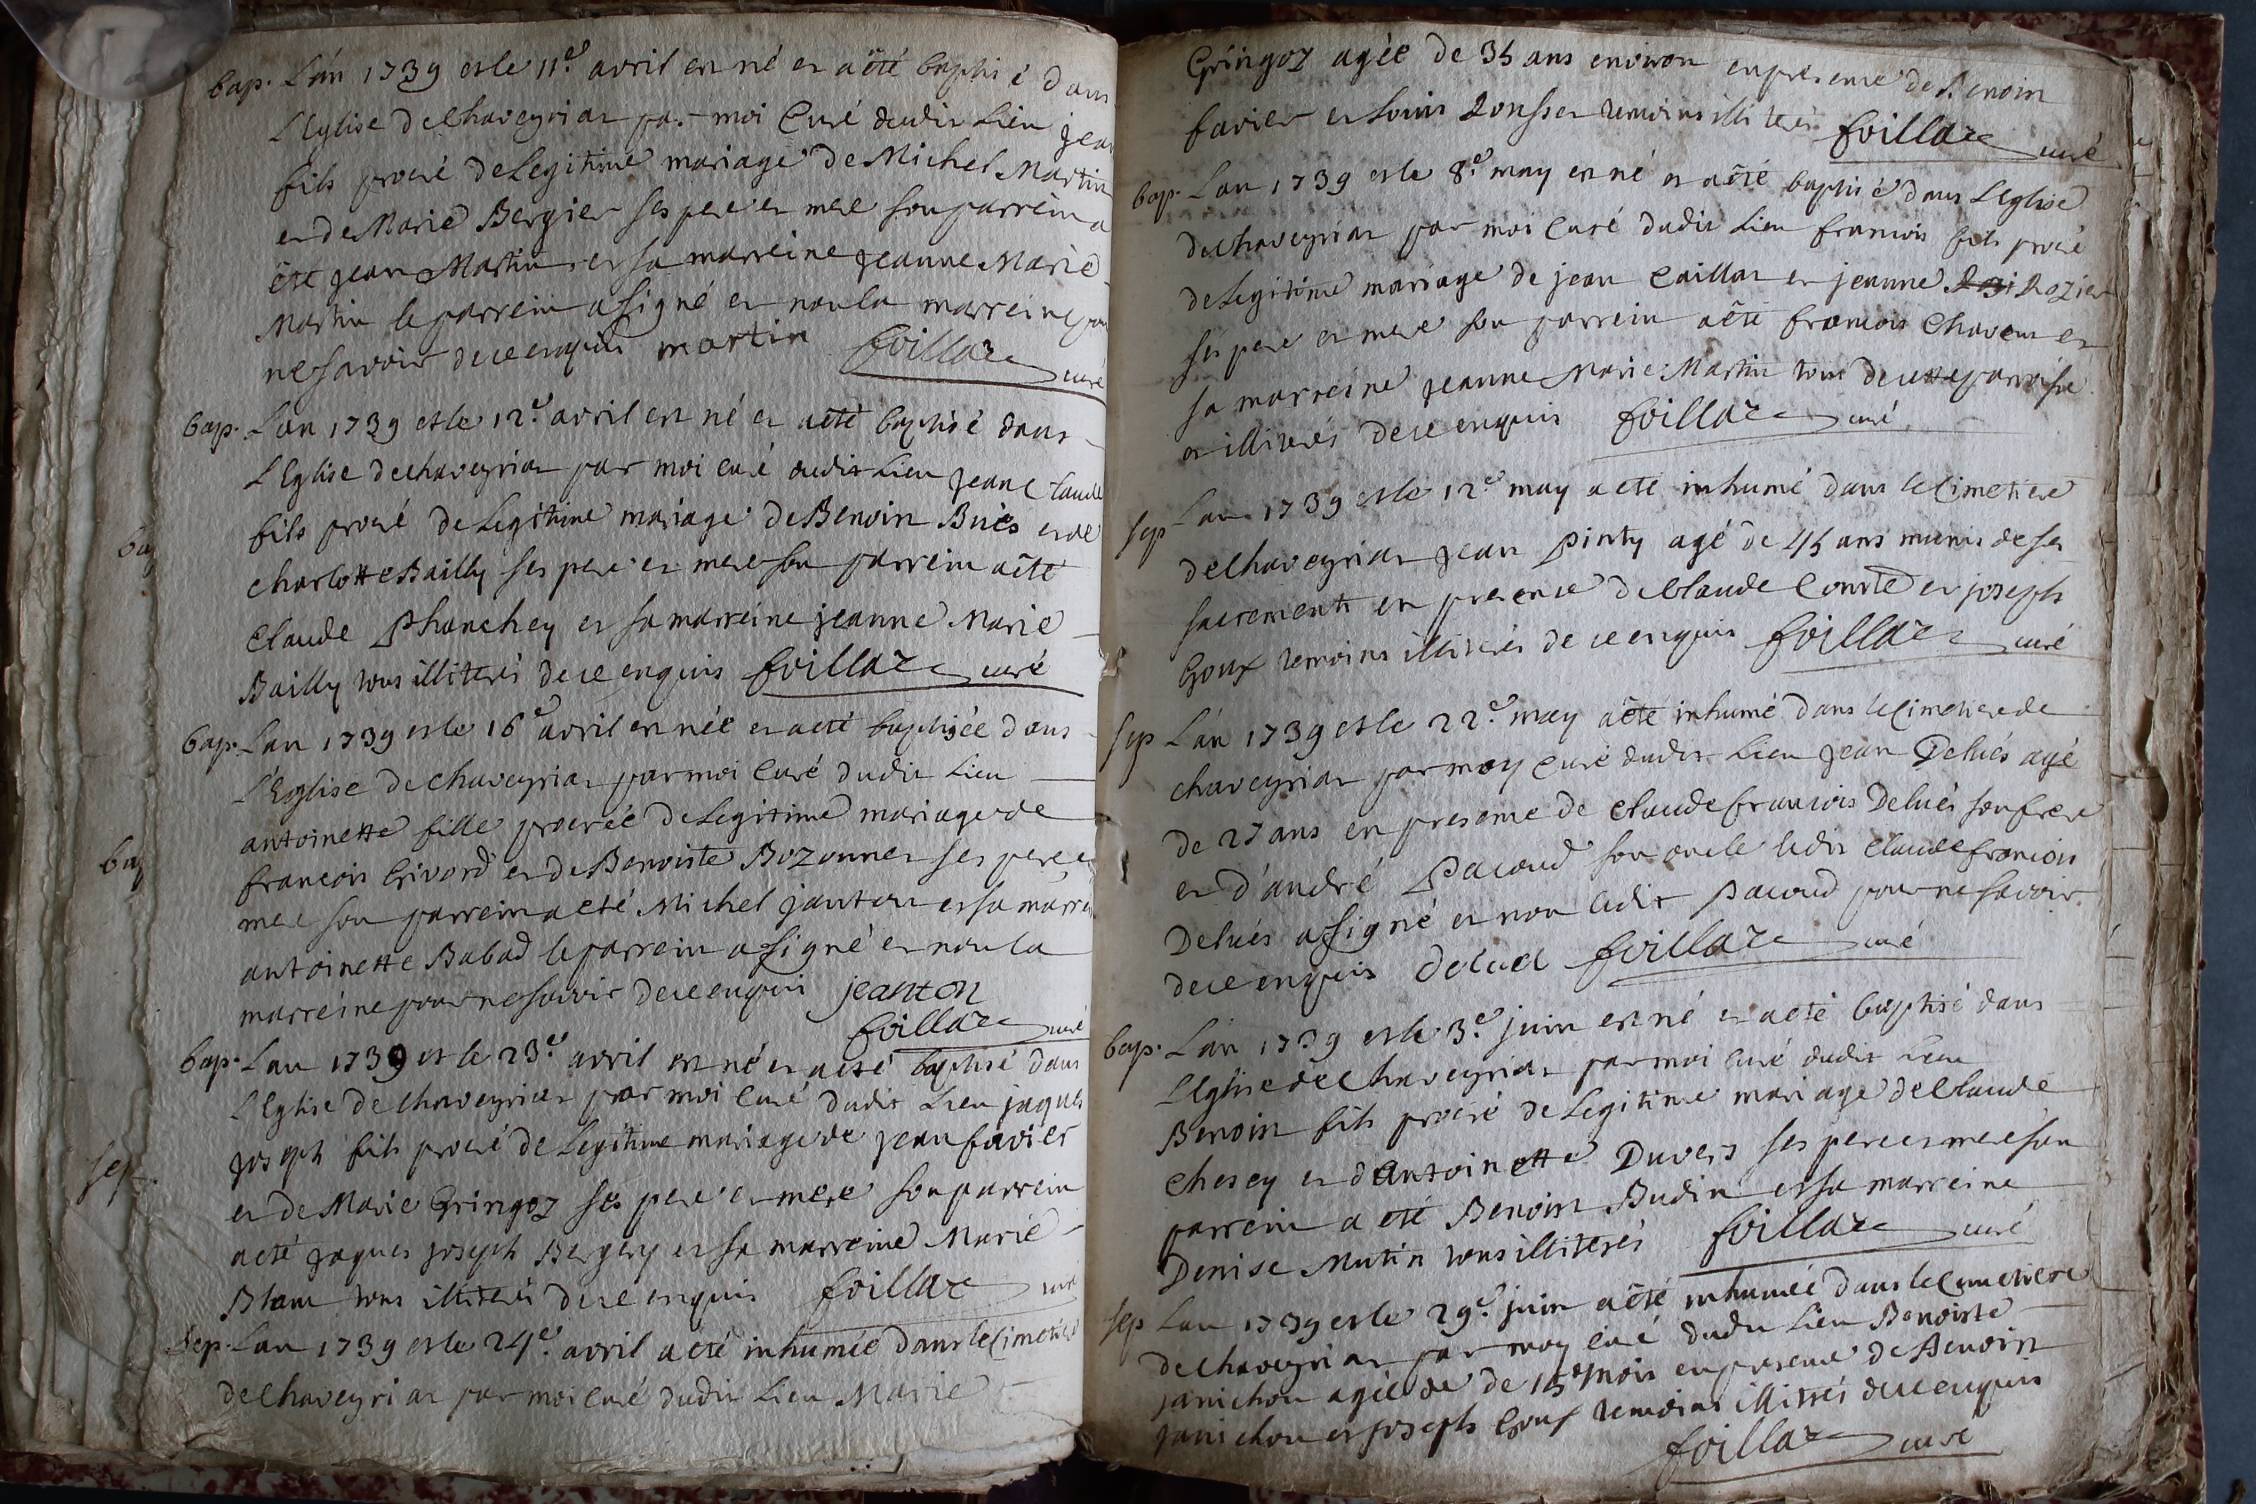 bap. L'an 1739 et le 11e avril est né et a été baptisé dans
L'Eglise de Chaveyriat par moi Curé dudit Lieu jean
fils procréé de Legitime mariage de Michel Martin
et de Marie Bergier ses pere et mere son parrein a
été jean Martin et sa marreine jeanne Marie
Martin le parrein a signé et non la marreine pour
ne savoir de ce enquis martin foillaze curé
bap. Lan 1739 et le 12e avril est né et a été baptisé dans
L'Eglise de chaveyriat par moi curé dudit Lieu jean Claude
fils procréé de Legitime mariage de Benoin Buès et de
charlotte Bailly ses pere et mere son parrein a été
Claude Phanchey et sa marreine jeanne Marie
Bailly tous illiterés de ce enquis foillaze curé
bap. Lan 1739 et le 16e avril est née et a été baptisée dans
L'Eglise de chaveyriat par moi Curé dudit Lieu
antoinette fille procréée de Legitime mariage de
francois Givord et de Benoiste Bozonnet ses pere et
mere son parrein a été Michel janton et sa marreine
antoinette Babad le parrein a signé et non la
marreine pour ne savoir de ce enquis jeanton
foillaze curé
bap. Lan 1739 et le 23e avril est né et a été baptisé dans
L'Eglise de chaveyriat par moi Curé dudit Lieu jaques
joseph fils procréé de Legitime mariage de jean favier
et de Marie Gringoz ses pere et mere son parrein
a été jaques joseph Bergery et sa marreine Marie
Blanc tous illiterés de ce enquis foillaze curé
Sep. Lan 1739 et le 24e avril a été inhumée dans le Cimetiere
de Chaveyriat par moi Curé dudit Lieu Marie
Gringoz agée de 35 ans environ en presence de Benoin
favier et Louis Rousset temoins illiterés foillaze curé
bap. Lan 1739 et le 8e may est né et a été baptisé dans L'Eglise
de chaveyriat par moi Curé dudit Lieu francois fils procréé
de Legitime mariage de jean Caillat et jeanne Rozier
ses pere et mere son parrein a été francois Chavent et
sa marreine jeanne Marie Martin tous de cette parroisse
et illiterés de ce enquis foillaze curé
sep Lan 1739 et le 12e may a été inhumé dans le Cimetiere
de Chaveyriat jean Pinty agé de 45 ans munis de ses
sacrements en presence de Claude Comte et joseph
Goux temoins illiterés de ce enquis foillaze curé
sep L'an 1739 et le 22e may a été inhumé dans le Cimetiere de
chaveyriat par moy Curé dudit Lieu jean Delués agé
de 27 ans en presence de Claude francois Delués son frere
et d'andré Pacoud son oncle ledit Claude francois
Delués a signé et non ledit Pacoud pour ne savoir
de ce enquis foillaze curé
bap. L'an 1739 et le 3e juin est né et a été baptisé dans
L'Eglise de Chaveyriat par moi Curé dudit Lieu
Benoin fils procréé de Legitime mariage de Claude
Chesey et d'Antoinette Duvers ses pere et mere son
parrein a été Benoin Budin et sa marreine
Denise Mutin tous illiterés foillaze curé
sep Lan 1739 et le 29e juin a été inhumée dans le Cimetiere
de chaveyriat par moy Curé dudit Lieu Benoiste
janichon agée de de 15 mois en presence de Benoin
janichon et joseph Goux temoins illiterés de ce enquis
foillaze curé